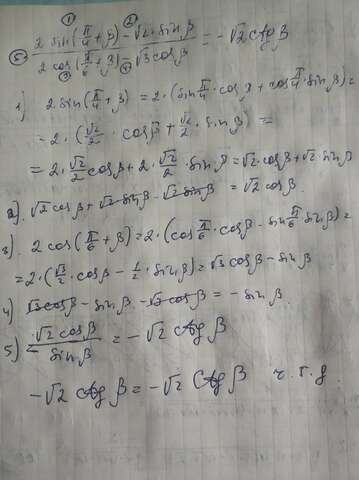 ① ②
⑤ (2 sin(π/4 + β) - √2 · sin β) / (2 cos(π/6 + β) - √3 cos β) = -√2 ctg β
③ ④
1) 2 sin(π/4 + β) = 2 · (sin π/4 · cos β + cos π/4 · sin β) =
= 2 · (√2/2 · cos β + √2/2 · sin β) =
= 2 · √2/2 cos β + 2 · √2/2 · sin β = √2 cos β + √2 sin β
2) √2 cos β + √2 sin β - √2 sin β = √2 cos β
3) 2 cos(π/6 + β) = 2 · (cos π/6 · cos β - sin π/6 sin β) =
= 2 · (√3/2 · cos β - 1/2 · sin β) = √3 cos β - sin β
4) √3 cos β - sin β - √3 cos β = - sin β
5) √2 cos β / - sin β = - √2 ctg β
-√2 ctg β = -√2 ctg β ч.т.д.